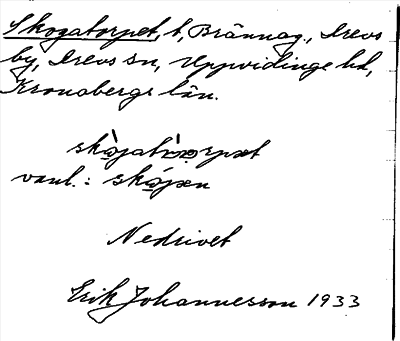 Skogatorpet, t, Brännag., Drevs
by, Drevs sn, Uppvidinge hd,
Kronobergs län.
vanl.:
Nedrivet
Erik Johannesson 1933